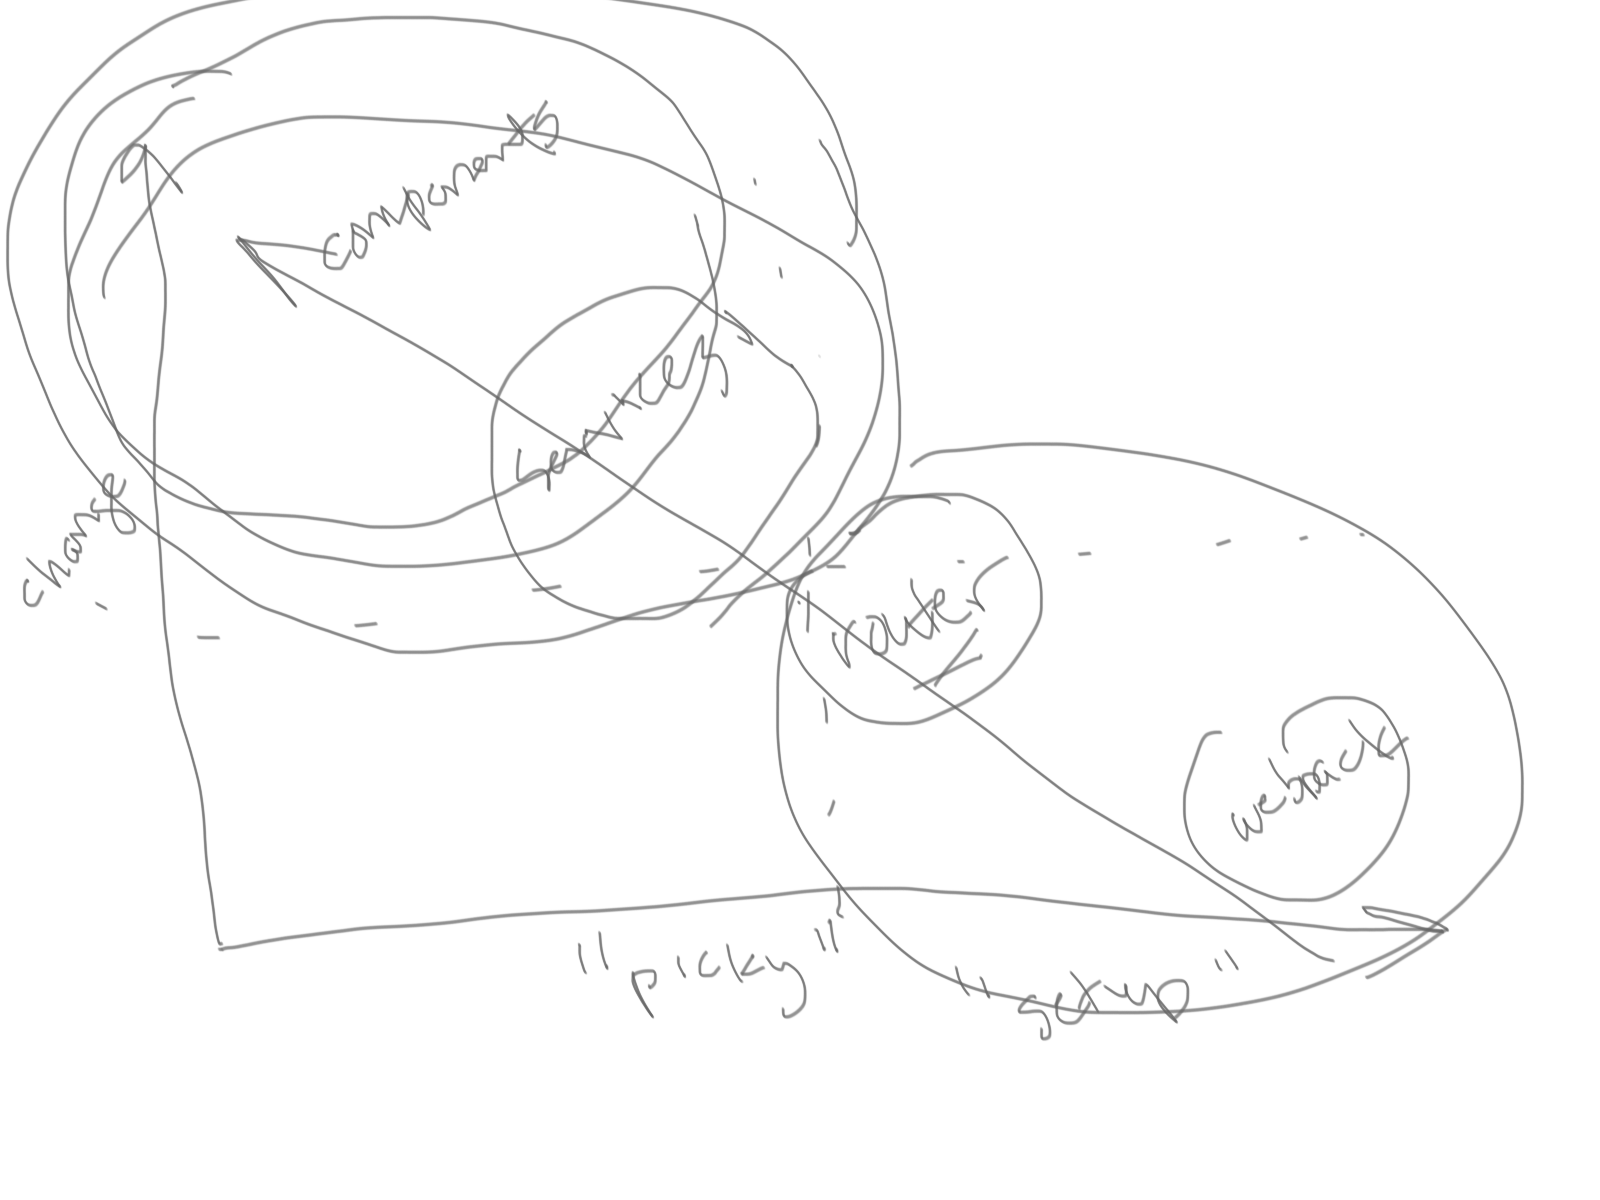 components
services
change
router
webpack
"picky"
"setup"